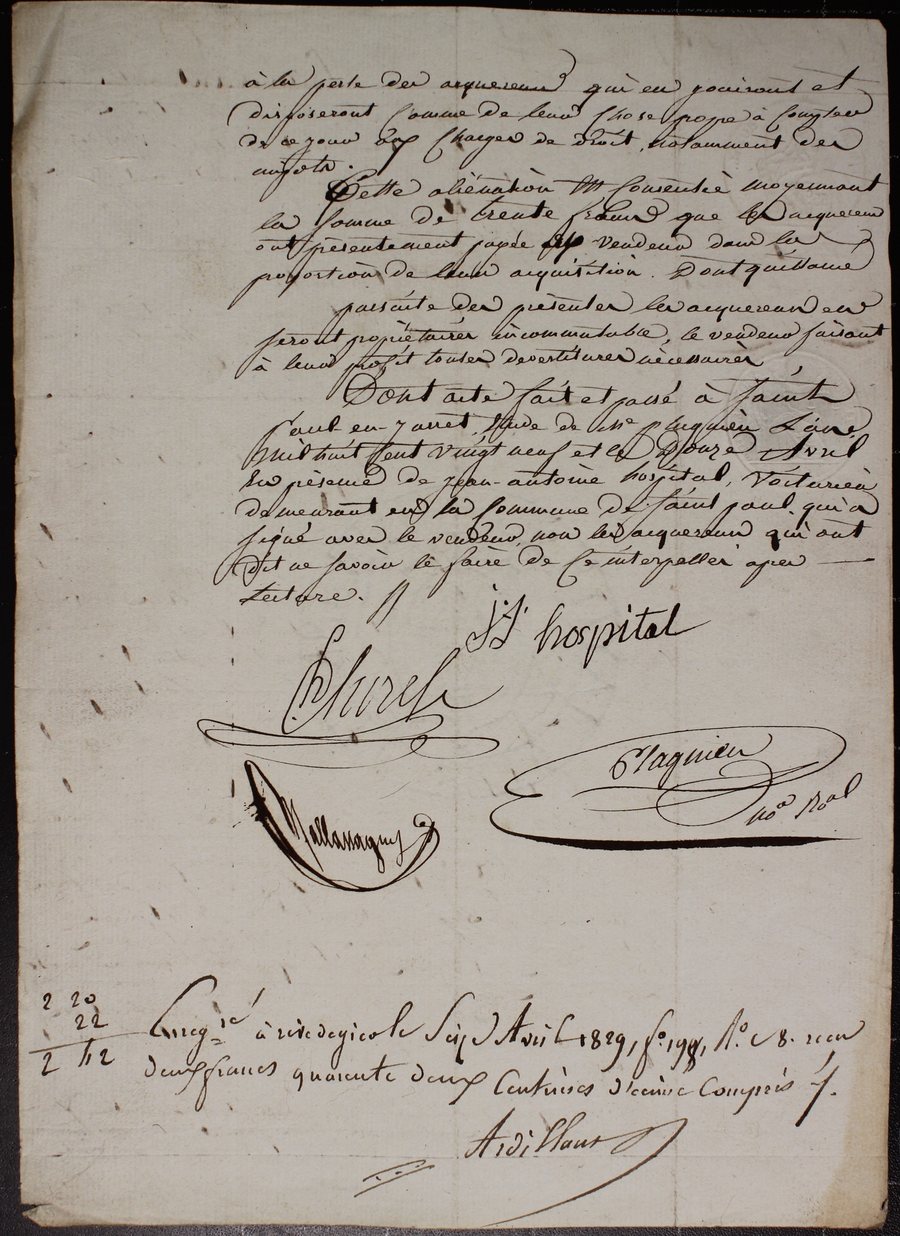 à la perte des acquereurs qui en jouiront et
disposeront comme de leur chose propre à compter
de ce jour aux charges de droit, notamment des
impots.
Cette aliénation est consentie moyennant
la somme de trente francs que les acquereurs
ont présentement payée aux vendeur dans la
proportion de leur acquisition. Dont quittance
parsuite des présentes les acquereurs en
seront propriétaires incommutable, le vendeur faisant
à leur profit toutes devestitures nécessaires
Dont acte fait et passé à Saint
paul en jarret, Etude de Me plagnieu L'an
mil huit Cent vingt neuf et le Douze Avril
En présence de jean-antoine hospital, Voiturier
demeurant en la Commune de Saint paul qui a
signé avec le vendeur, non les acquereurs qui ont
dit ne savoir le faire de ce interpellés apres
lecture.
hospital
Plagnieu
no.re Ro.al
2 20
22
2 42
Enreg.ré à rivedegier le Seize Avril 1829, fo. 198, No. c 8. reçu
deux francs quarente deux Centimes d'ecime Compris
Ardillaus